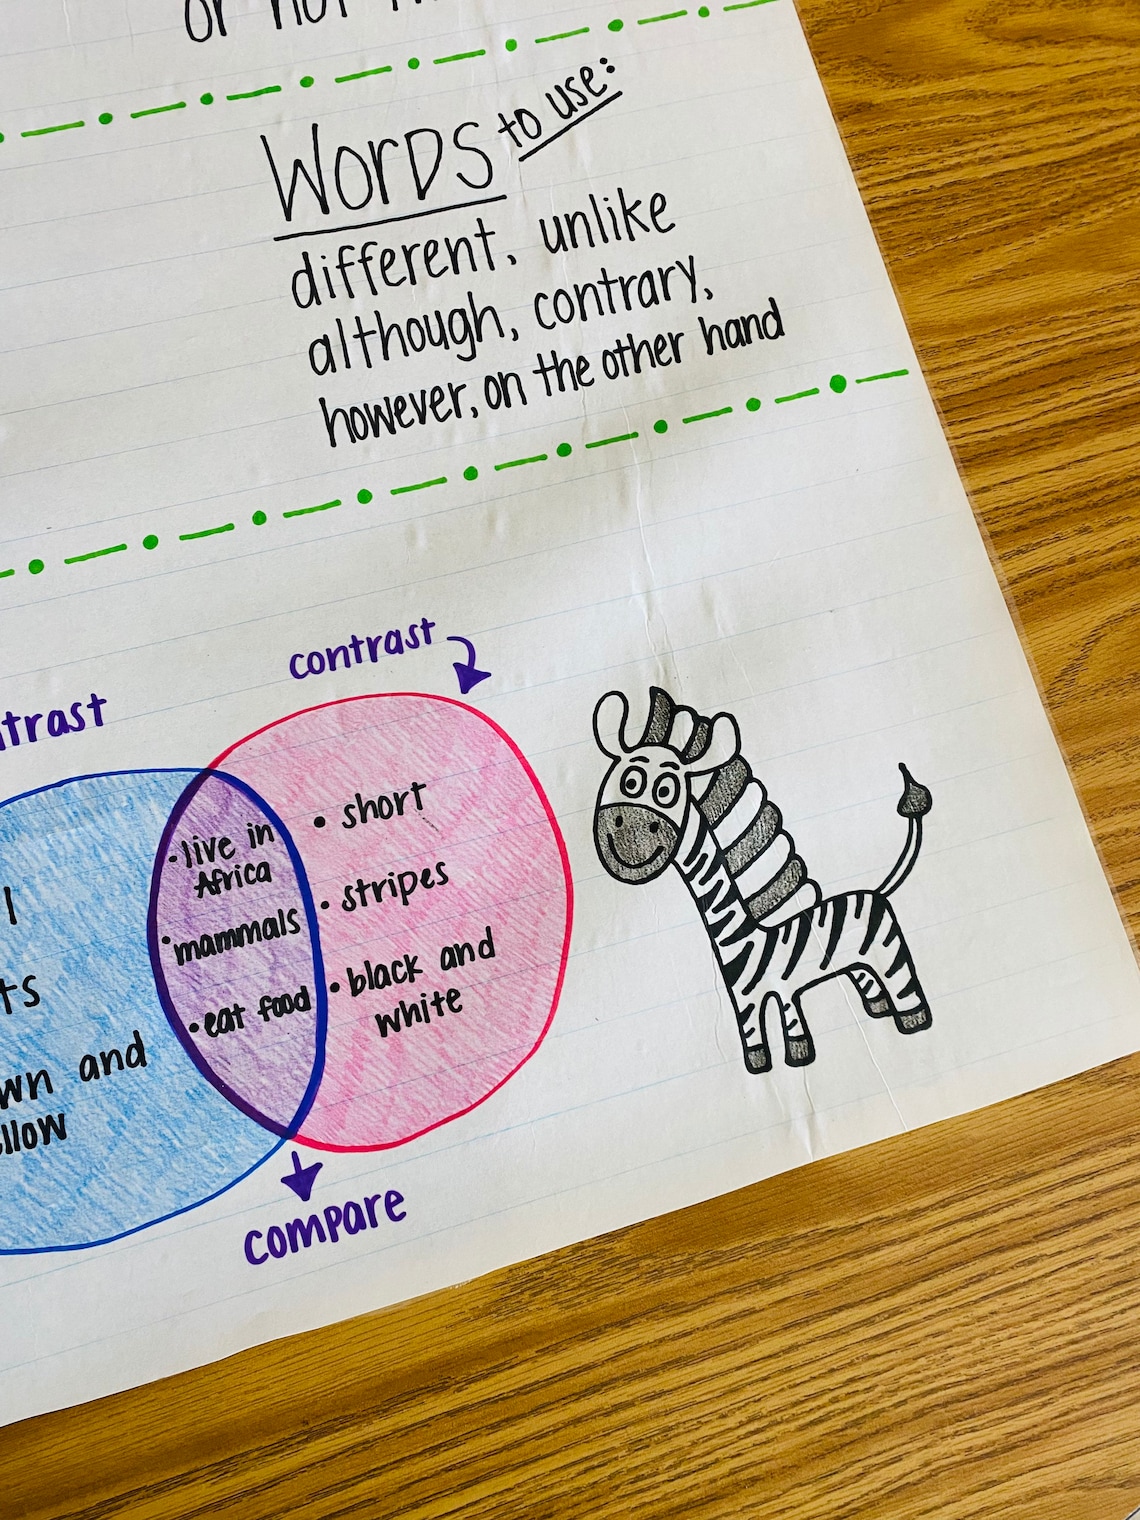 or not
Words to use:
different, unlike
although, contrary,
however, on the other hand
contrast
trast
live in
Africa
mammals
eat food
short
stripes
black and
white
l
ts
wn and
llow
compare